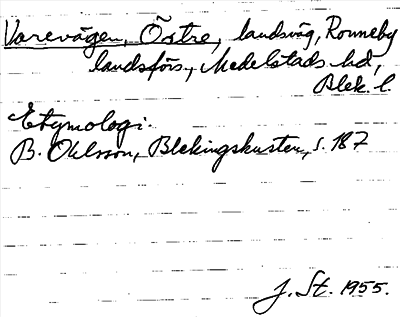 Varevägen, Östre, landsväg, Ronneby
landsförs., Medelstads hd,
Blek. l.
Etymologi.
B. Ohlsson, Blekingskusten, s. 187
J. St. 1955.